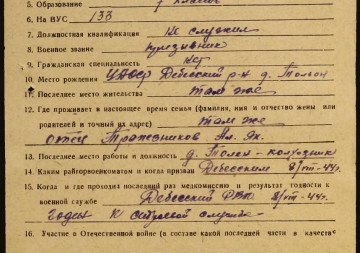 5. Образование 7 классов
6. На ВУС 133
7. Должностная квалификация не служил
8. Военное звание призывник
9. Гражданская специальность нет
10. Место рождения УАССР Дебесский р-н д. Тольен
11. Последнее место жительства там же
12. Где проживает в настоящее время семья (фамилия, имя и отчество жены или
родителей и точный их адрес) там же
отец Ал. Як.
13. Последнее место работы и должность д. Тольен - колхозник
14. Каким райгорвоенкоматом и когда призван Дебесским 8/VIII-44г.
15. Когда и где проходил последний раз медкомиссию и результат годности к
военной службе Дебесский РВК 8/VIII-44г.
годен к строевой службе
16. Участие в Отечественной войне (в составе какой последней части в качеств